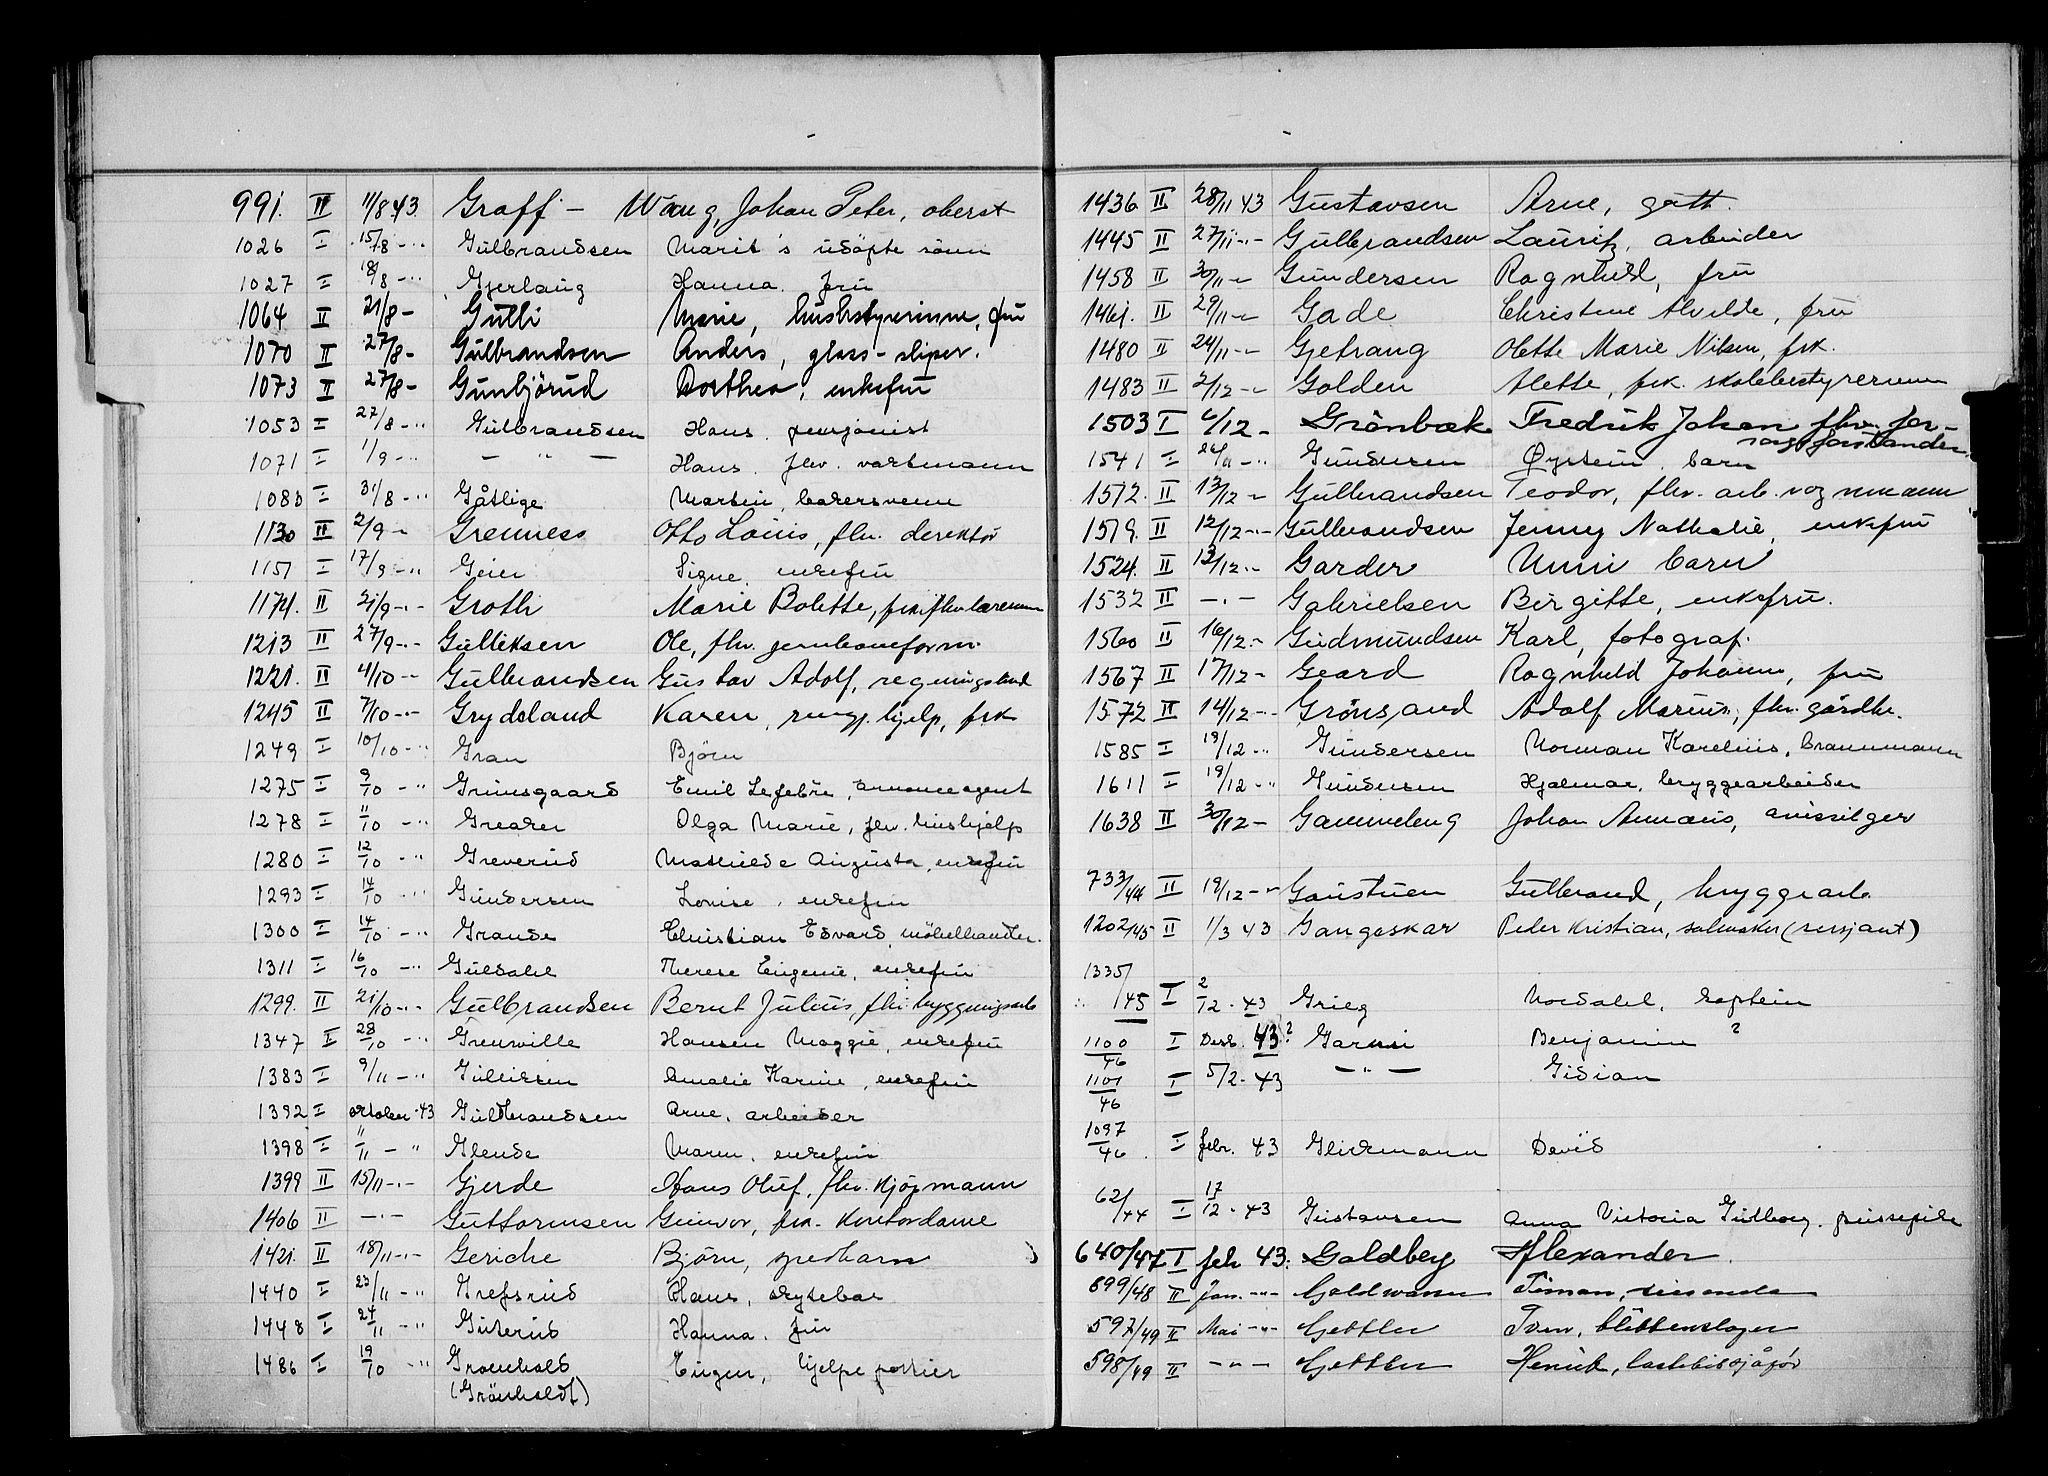 991. II 11/8 43. Graff - Wang, Johan Peter, oberst
1026 I 15/8 - " Gulbrandsen Marit's udöpte sönn
1027 I 18/8 - " Gjerlaug Hanna. fru
1064 II 21/8 - Gulli Marie, husbstyrerinne, fru
1070 II 27/8 - Gulbrandsen Anders, glass-sliper.
1073 II 27/8 - Gunbjörud Dorthea, enkefru
1053 I 27/8 - " Gulbrandsen Hans. pensjonist
1071 I 1/9 - " — " — Hans. fhv. vaktmann
1083 I 31/8 - " Gåtlige Martin, bakersvenn
1130 II 2/9 - Grenness Otto Louis, fhv. direktör
1151 I 17/9 - " Geier Signe. enkefru
1174. II 21/9 - " - Groth Marie Bolette, frk. fhv. lærerinne
1213 II 27/9 - " - Gulliksen Ole, fhv. jernbaneform.
1221. II 4/10 - " Gulbrandsen Gustav Adolf, regningsbud
1245 II 7/10 - " - Grydeland Karen, rengj. hjelp, frk
1249 I 10/10 - " Gran Björn
1275 I 9/10 - " Grimsgaard Emil Lefebre, annonceagent
1278 I 11/10 - " Greaker Olga Marie, fhv. hushjelp
1280 I 12/10 - " Greverud Mathilde Augusta, enkefru
1293 I 14/10 - " Gundersen Louise, enkefru
1300 I 14/10 - " Grande Christian Edvard, möbelhandler.
1311 I 16/10 - " Guldahl Therese Eugenie, enkefru
1299. II 21/10 - " - Gulbrandsen Bernt Julius, fhv. bygningsarb
1347 I 28/10 - " Grenville Hansen Maggie, enkefru
1383 I 9/11 - " Gulliksen Amalie Karine, enkefru
1392 I oktober 43 Guldbrandsen Arne, arbeider
1398 I 11/11 - " Glende Maren, enkefru
1399 II 15/11 - " - Gjerde Hans Oluf, fhv. kjöpmann
1406 II — " — Guttormsen Gunvor, frk. kontordame
1421. II 18/11 - " - Geriche Björn, spedbarn
1440 I 23/11 - " Grefsrud Hans, skytebas
1448 I 24/11 - " Guterud Hanna. fru
1486 I 19/10 - " Gronhold Eugen, hjelpeportier
(Grönholdt)
1436 II 28/11 43 Gustavsen Arne, gått.
1445 II 27/11 - " - Gulbrandsen Lauritz, arbeider
1458 II 30/11 - " Gundersen Ragnhild, fru
1461. II 29/11 - " Gade Christine Alvilde, fru
1480 II 24/11 - " Gjetrang Olette Marie Nilsen, frk.
1483 II 2/12 - " Golden Alette, frk. skolebestyrerinne
1503 I 6/12 - Grönbæk Fredrik Johan fhv. for-
sorgsforstander.
1541 I Gundersen Øystein. barn
1512. II 13/12 - " Gulbrandsen Teodor, fhv. arb. vognmann
1519. II 12/12 - " - Gulbrandsen Jenny Nathalie, enkefru
1524. II 13/12 - " Garder Unni barn
1532 II — " — Gabrielsen Birgitte, enkefru.
1560 II 16/12 - " Gudmundsen Karl, fotograf.
1567 II 17/12 - Geard Ragnhild Johanne, fru
1572 II 14/12 - " Grönsand Adolf Marius, fhv. gårdbr.
1585 I 19/12 - " Gundersen Norman Karelius, brannmann
1611 I 19/12 - " Gundersen Hjalmar, bryggearbeider
1638 II 30/12 - Gammeleng Johan Annæus, avisselger
733/44 II 19/12 - " Gaustuen Gulbrand, bryggearb.
1202/45 II 1/3 43 Gangaskar Peder Kristian, salmaker (sersjant)
1335/45 I 2/12 - 43 Grieg Nordahl, kaptein
1100/46 I Des. 43? Garni Benjamin ?
1101/46 I 5/2 - 43 — " — Gidian
1097/46 I febr. 43 Glickmann David
62/44 I 17/12 - 43 Gustavsen Anna Victoria Gudborg. pussepike
640/47 I feb 43. Goldberg Alexander
899/48 II Jan. - " - Goldwasser reisende
597/49 II Mai - " - Gettler blikkenslager
598/49 II — " — Gettler Henrik, lastebilsjåför